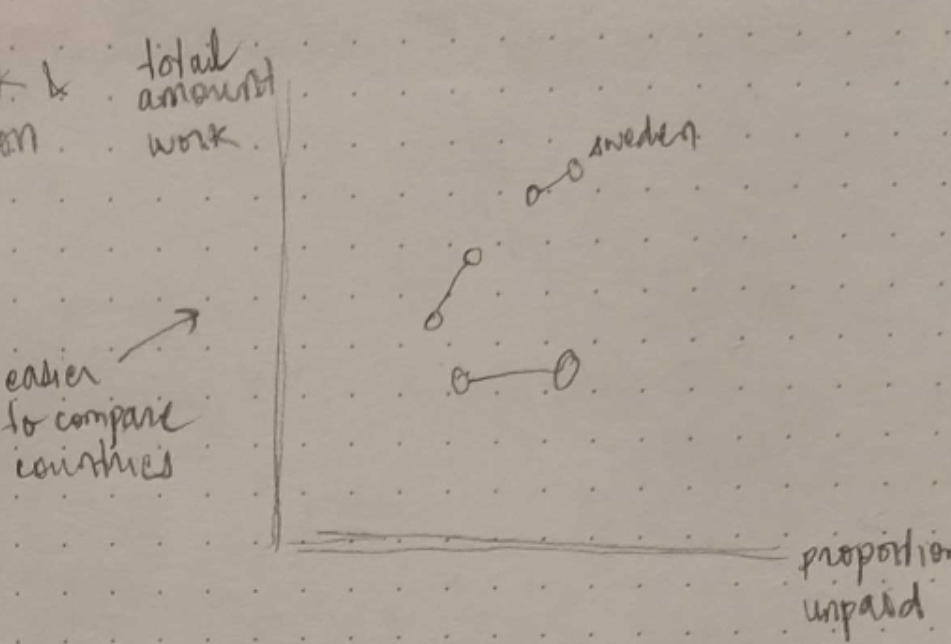 total
amount
work
sweden
easier
to compare
countries
proportion
unpaid